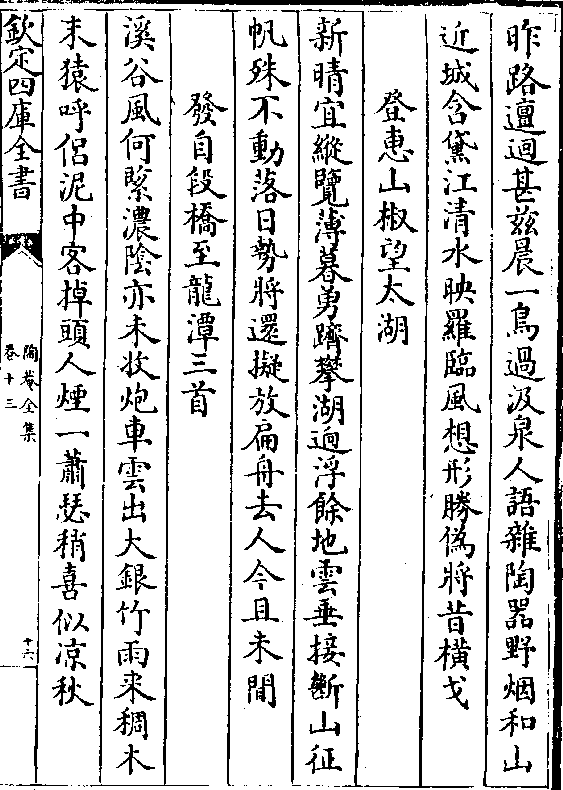 昨路邅迴甚兹晨一鳥過汲泉人語雜陶器野烟和山
近城含黛江清水映羅臨風想形勝偽將昔横戈
登惠山椒望太湖
新晴宜縱覽薄暮勇躋攀湖迥浮餘地雲垂接斷山征
帆殊不動落日勢將還擬放扁舟去人今且未閒
發自段橋至龍潭三首
溪谷風何緊濃陰亦未收炮車雲出大銀竹雨来稠木
末猿呼侶泥中客掉頭人煙一蕭瑟稍喜似凉秋
欽定四庫全書
陶菴全集
卷十三
十六